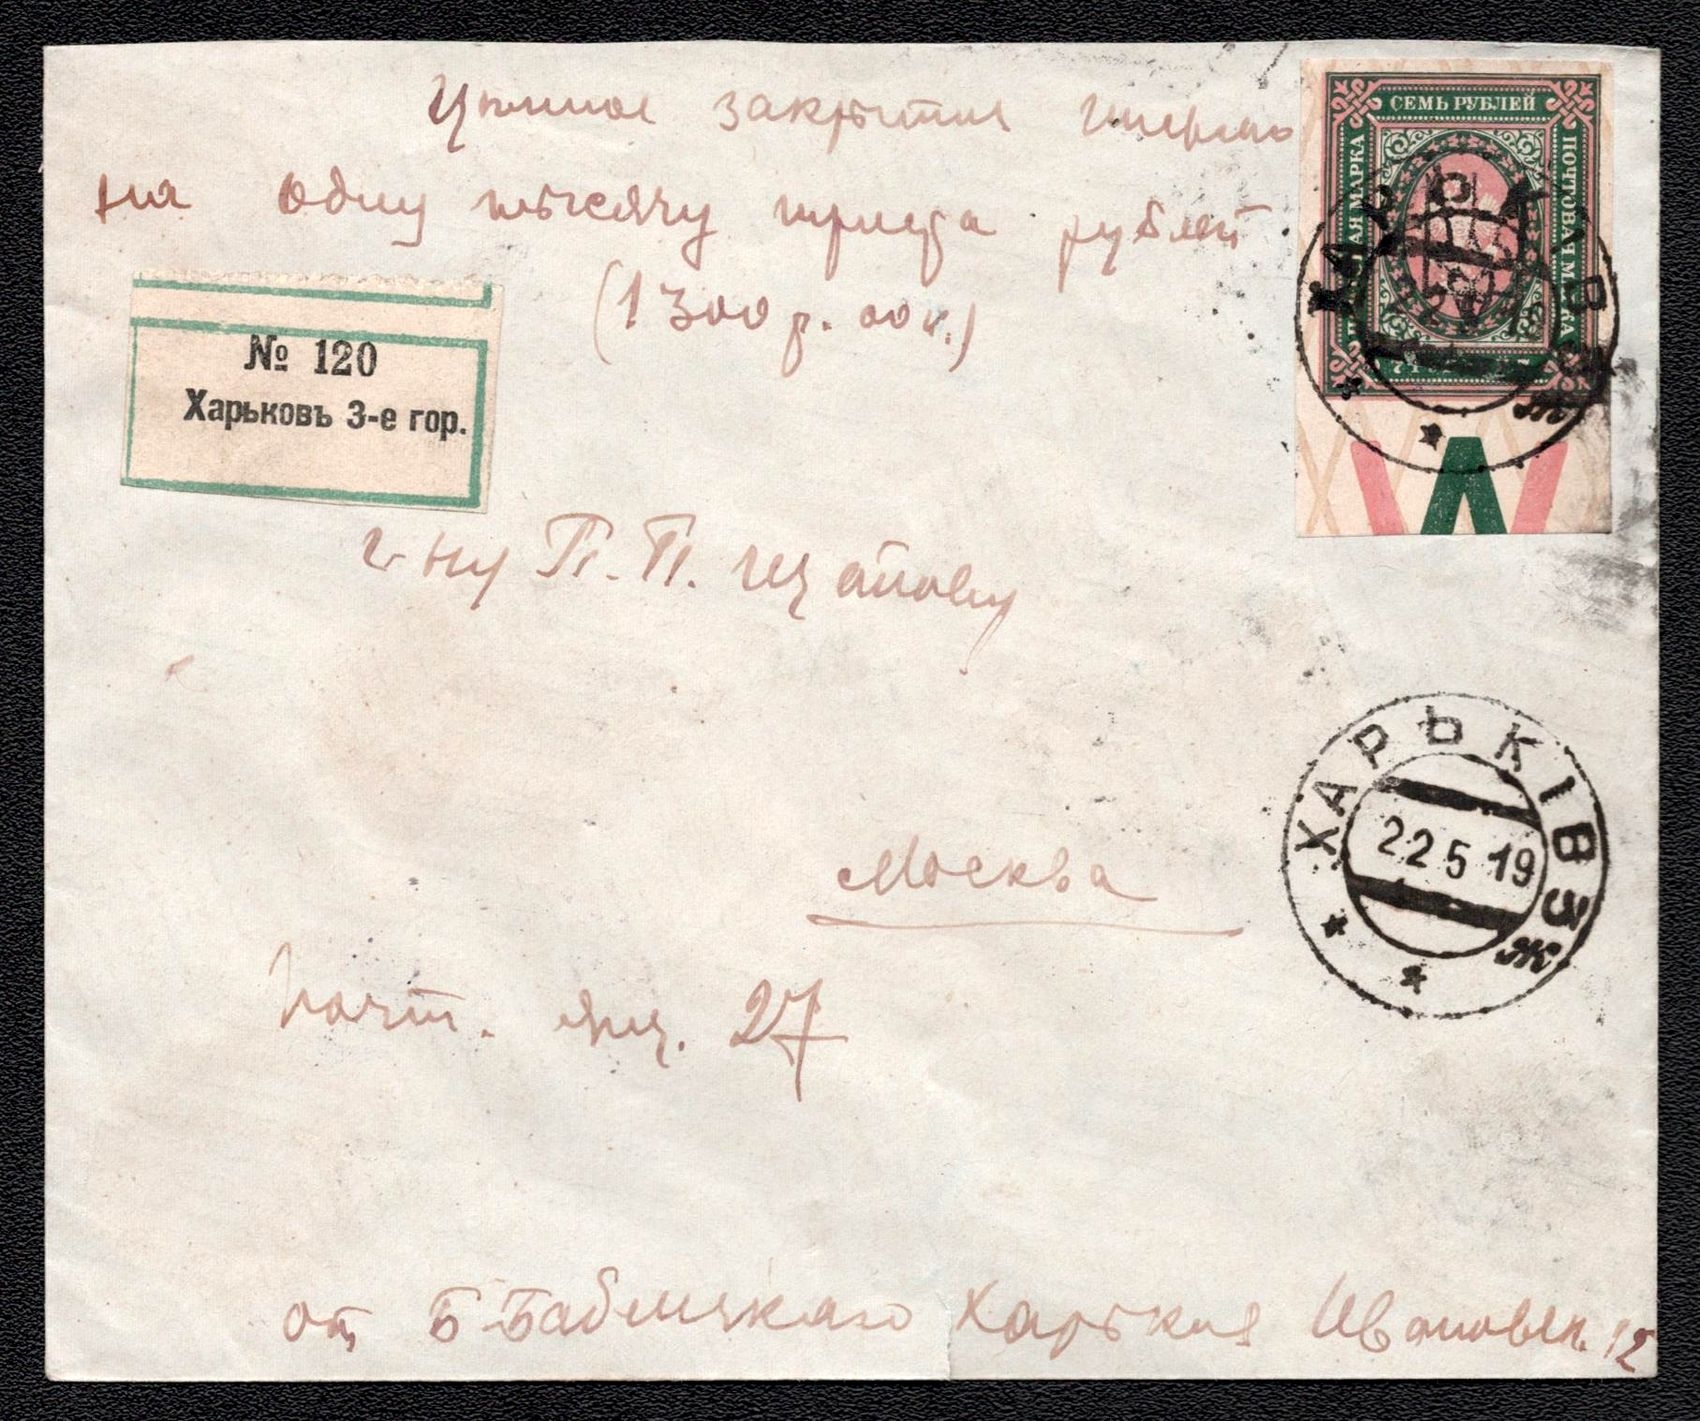 Цѣнное закрытое письмо
на одну тысячу триста рублей
(1300 р. 00 к.)
СЕМЬ РУБЛЕЙ
ПОЧТОВАЯ МАРКА
№ 120
Харьковъ 3-е гор.
г-ну П. П. Щапову
ХАРЬКІВ 3 Ж
22 5 19
Москва
почт. ящ. 27
от Б. Харьков 12